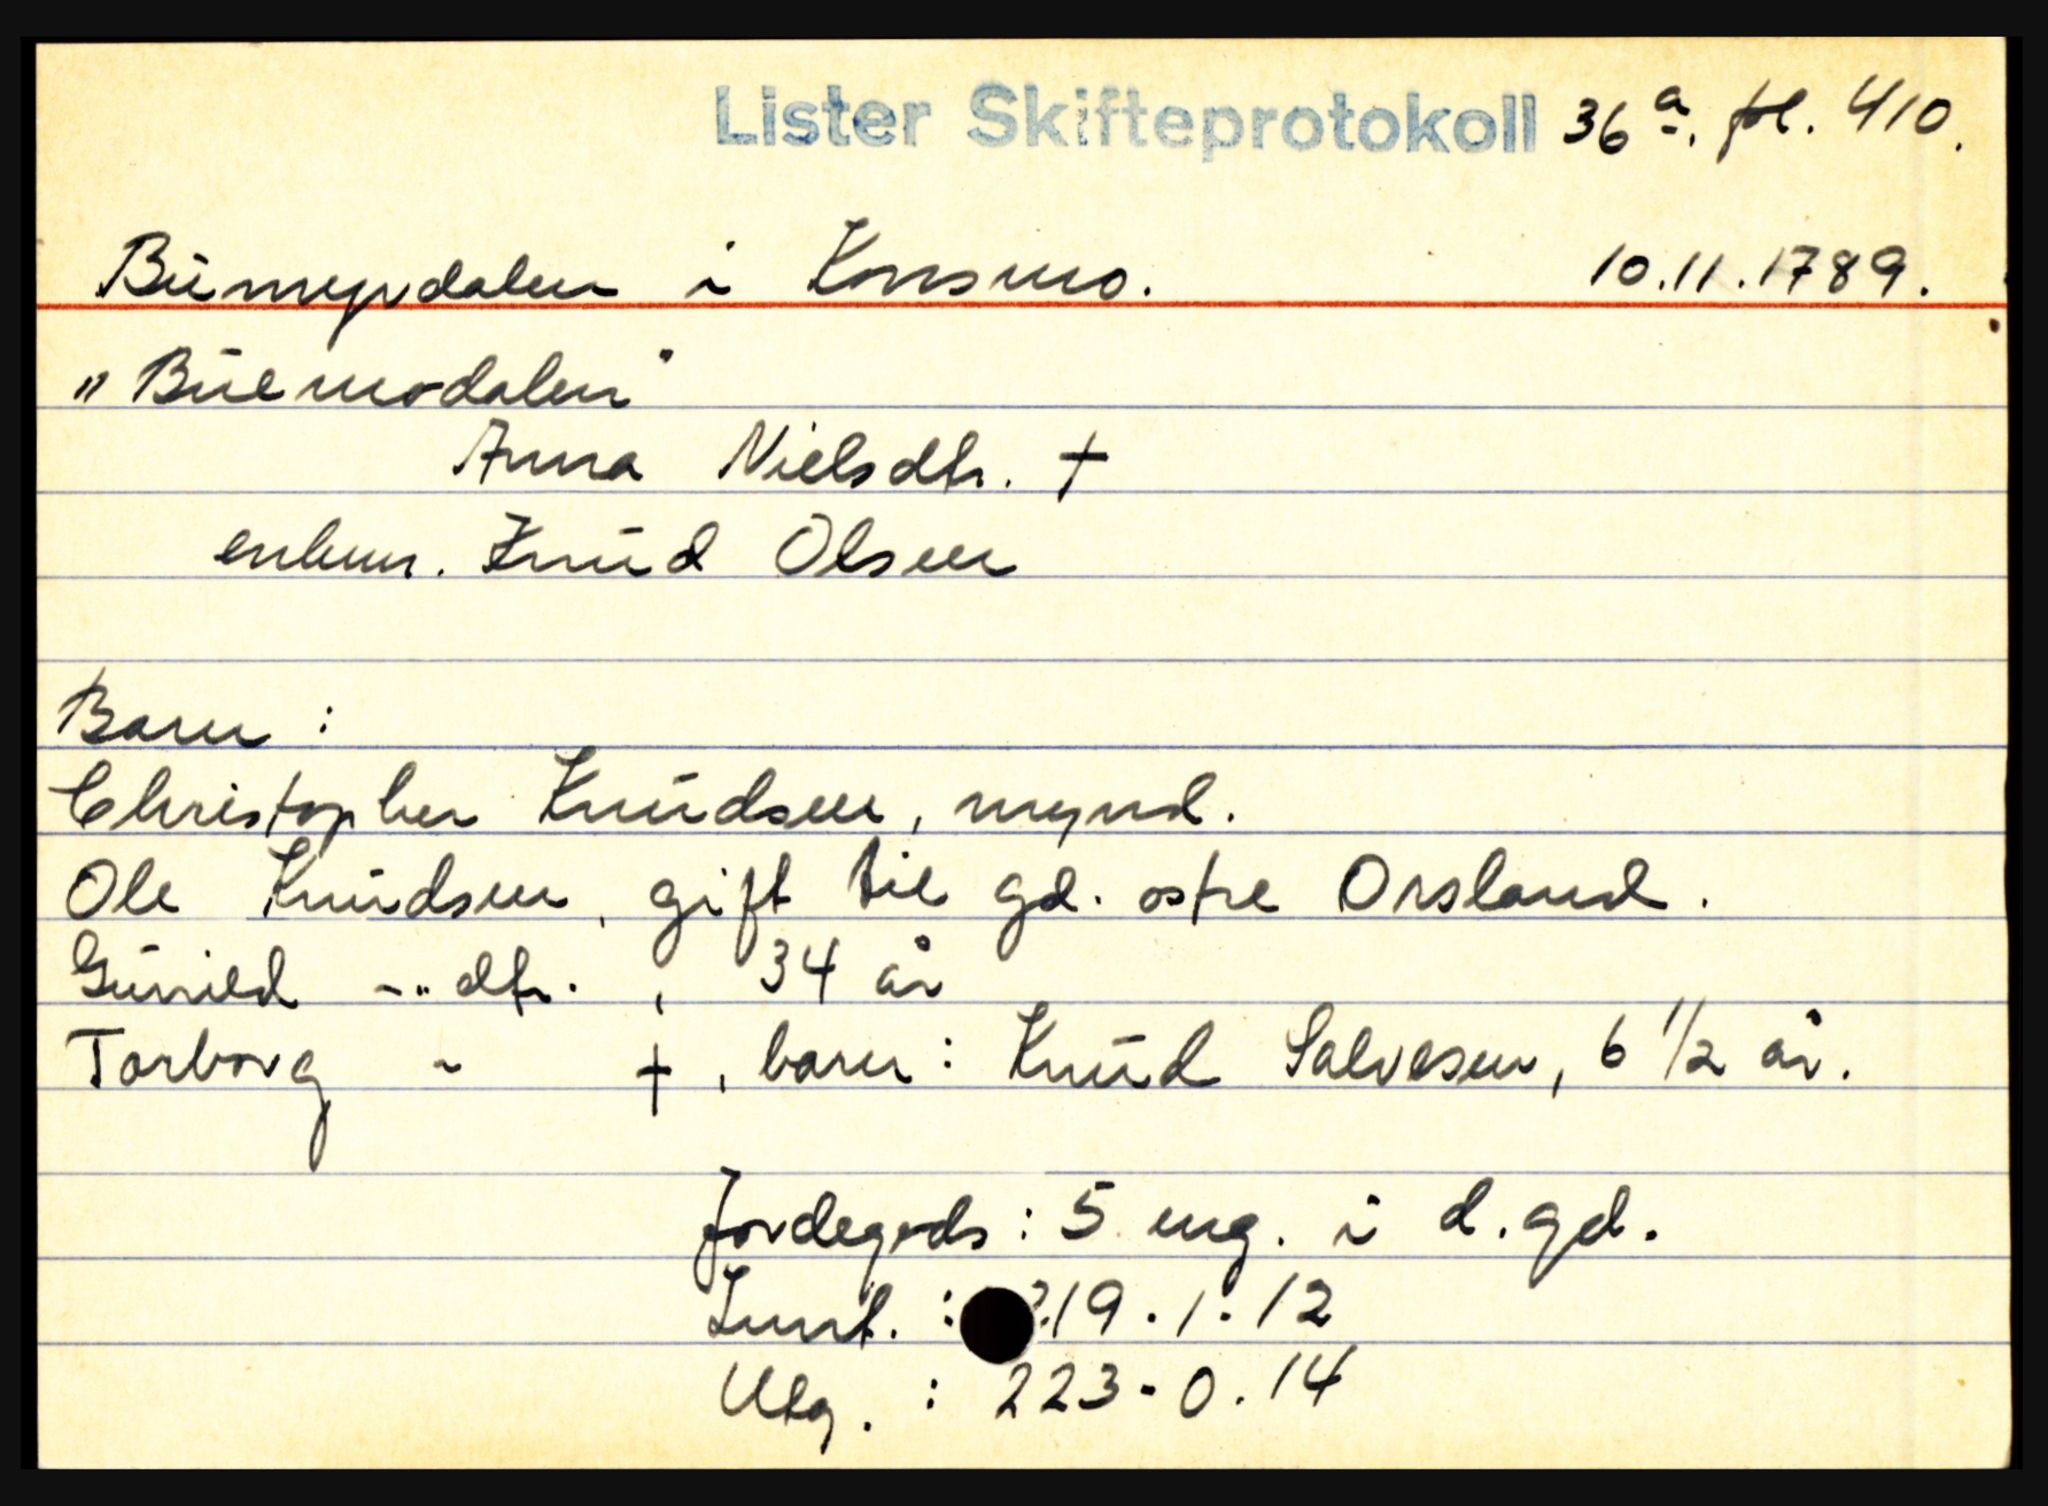 Lister Skifteprotokoll 36 a. fol. 410.
Bumyrdalen i Konsmo. 10.11.1789.
„Buemodalen"
Anna Nielsdtr. †
enkem. Knud Olsen
Barn :
Christopher Knudsen, mynd.
Ole Knudsen, gift til gd. østre Orsland.
Gunild -"- dtr. , 34 år
Torborg " † , barn: Knud Salvesen, 6 1/2 år.
Jordegods : 5 eng. i d. gd.
Innt. : 19.1.12
Utg. : 223-0.14